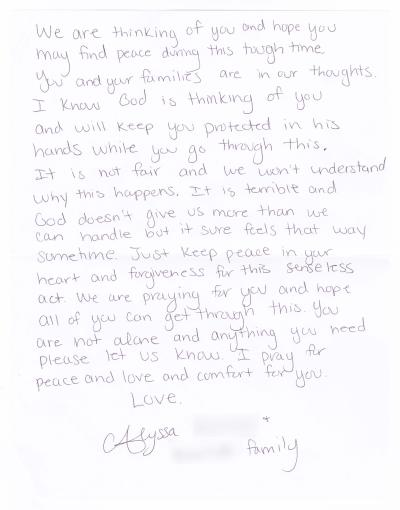 We are thinking of you and hope you
may find peace during this tough time.
You and your families are in our thoughts.
I know God is thinking of you
and will keep you protected in his
hands while you go through this.
It is not fair and we won't understand
why this happens. It is terrible and
God doesn't give us more than we
can handle but it sure feels that way
sometime. Just keep peace in your
heart and forgiveness for this senseless
act. We are praying for you and hope
all of you can get through this. You
are not alone and anything you need
please let us know. I pray for
peace and love and comfort for you.
Love.
Alyssa +
family